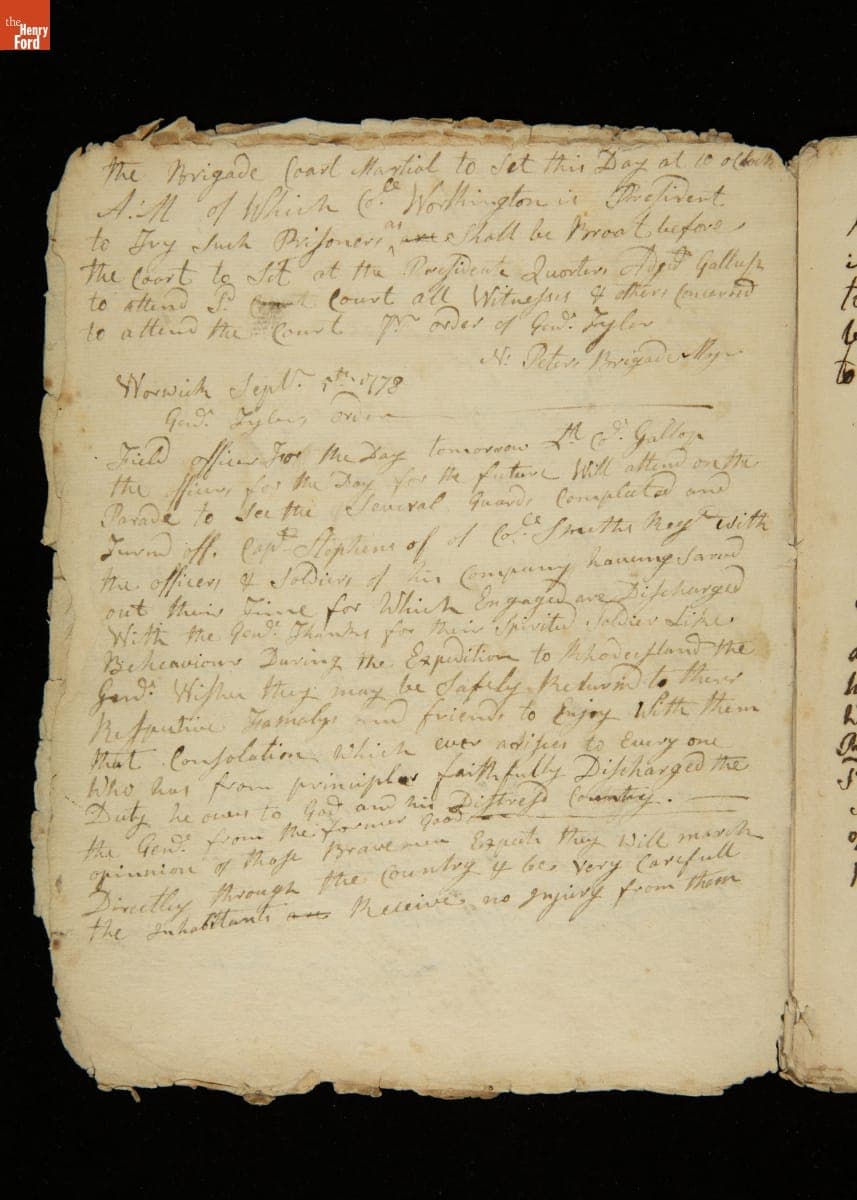 the Henry Ford
the Brigade Coart Martial to Set this Day at 10 oClock
A:M of Which Coll Worthington is President
to Try Such Prisoners as are Shall be Broat before
the Court to Set at the Presidents Quorters Adjt Gallup
to attend Sd Court Court all Witnesses & others Concernd
to attend the Court Pr order of Genl Tyler
N: Peters Brigade Majr
Worwick Sept 1778
Genl Tylers order
Field officer For the Day tomorrow Lt Col Gallop
the officers for the Day for the future Will attend on the
Parade to See the Several Guards Compleated and
Turnd off. Capt Stephens of of Coll Smiths Regt with
the officers & Soldiers of his Company haveing Sarvd
out their Time for Which Engaged are Discharged
With the Genls Thanks for their Spirited Soldier Like
Beheaviour During the Expedition to Rhodeisland the
Genl Wishes they may be Safely Returnd to there
Respective Famalys and friends to Enjoy With them
that Consolation which ever arises to Every one
Who has from principle faithfully Discharged the
Duty he owes to God and his Distresd Country.
the Genl from the former Good
opinnion of those Brave men Expects they will march
Directly through the Country & be Very Carefull
the Inhabitants are Receive no Injury from them